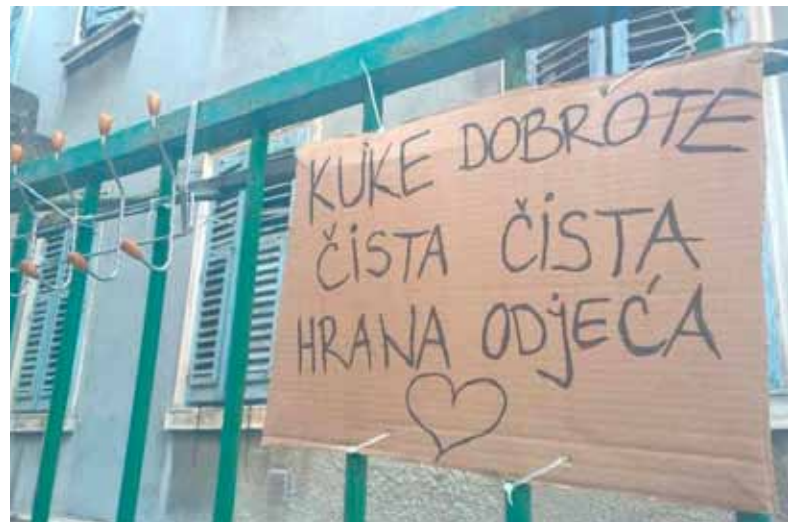 KUKE DOBROTE
ČISTA ČISTA
HRANA ODJEĆA